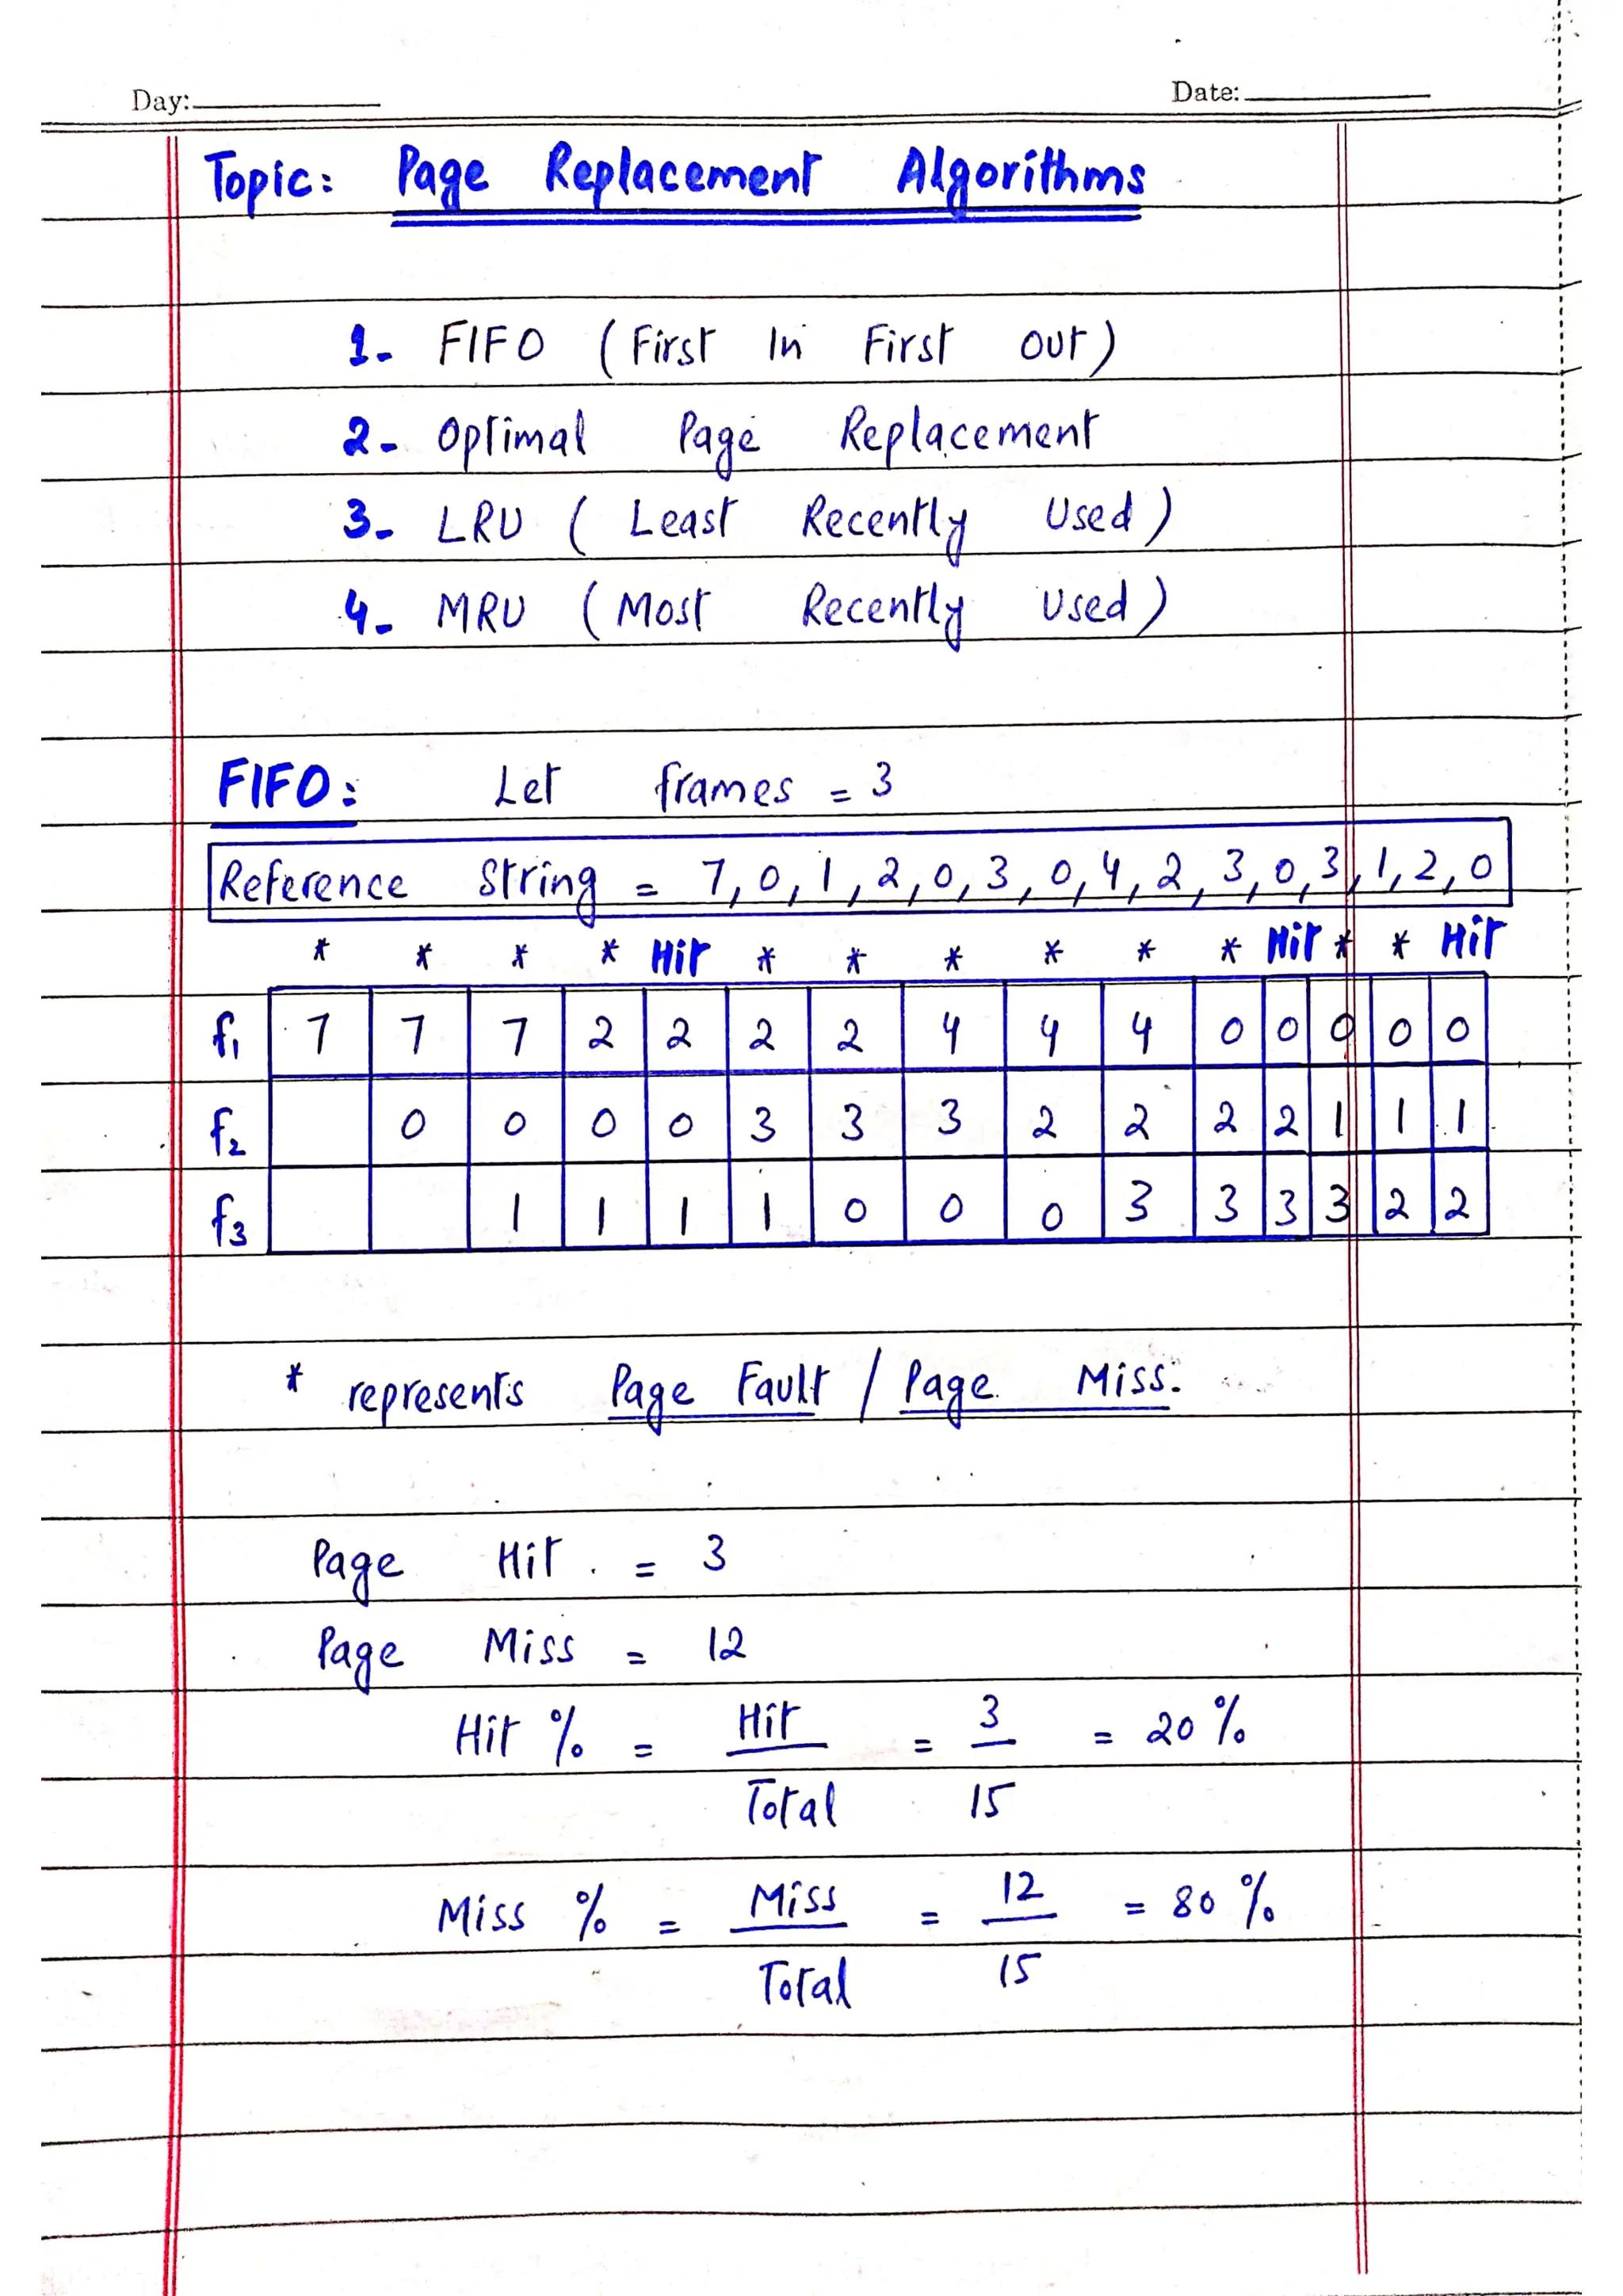 Day:
Date:
Topic: Page Replacement Algorithms
1- FIFO (First In First Out)
2- Optimal Page Replacement
3- LRU (Least Recently Used)
4- MRU (Most Recently Used)
FIFO: Let frames = 3
Reference String = 7,0,1,2,0,3,0,4,2,3,0,3,1,2,0
* * * * Hit * * * * * * Hit * * Hit
f1 7 7 7 2 2 2 2 4 4 4 0 0 0 0 0
f2 0 0 0 0 3 3 3 2 2 2 2 1 1 1
f3 1 1 1 1 0 0 0 3 3 3 3 2 2
* represents Page Fault / Page Miss.
Page Hit = 3
Page Miss = 12
Hit % = Hit = 3 = 20%
Total 15
Miss % = Miss = 12 = 80%
Total 15